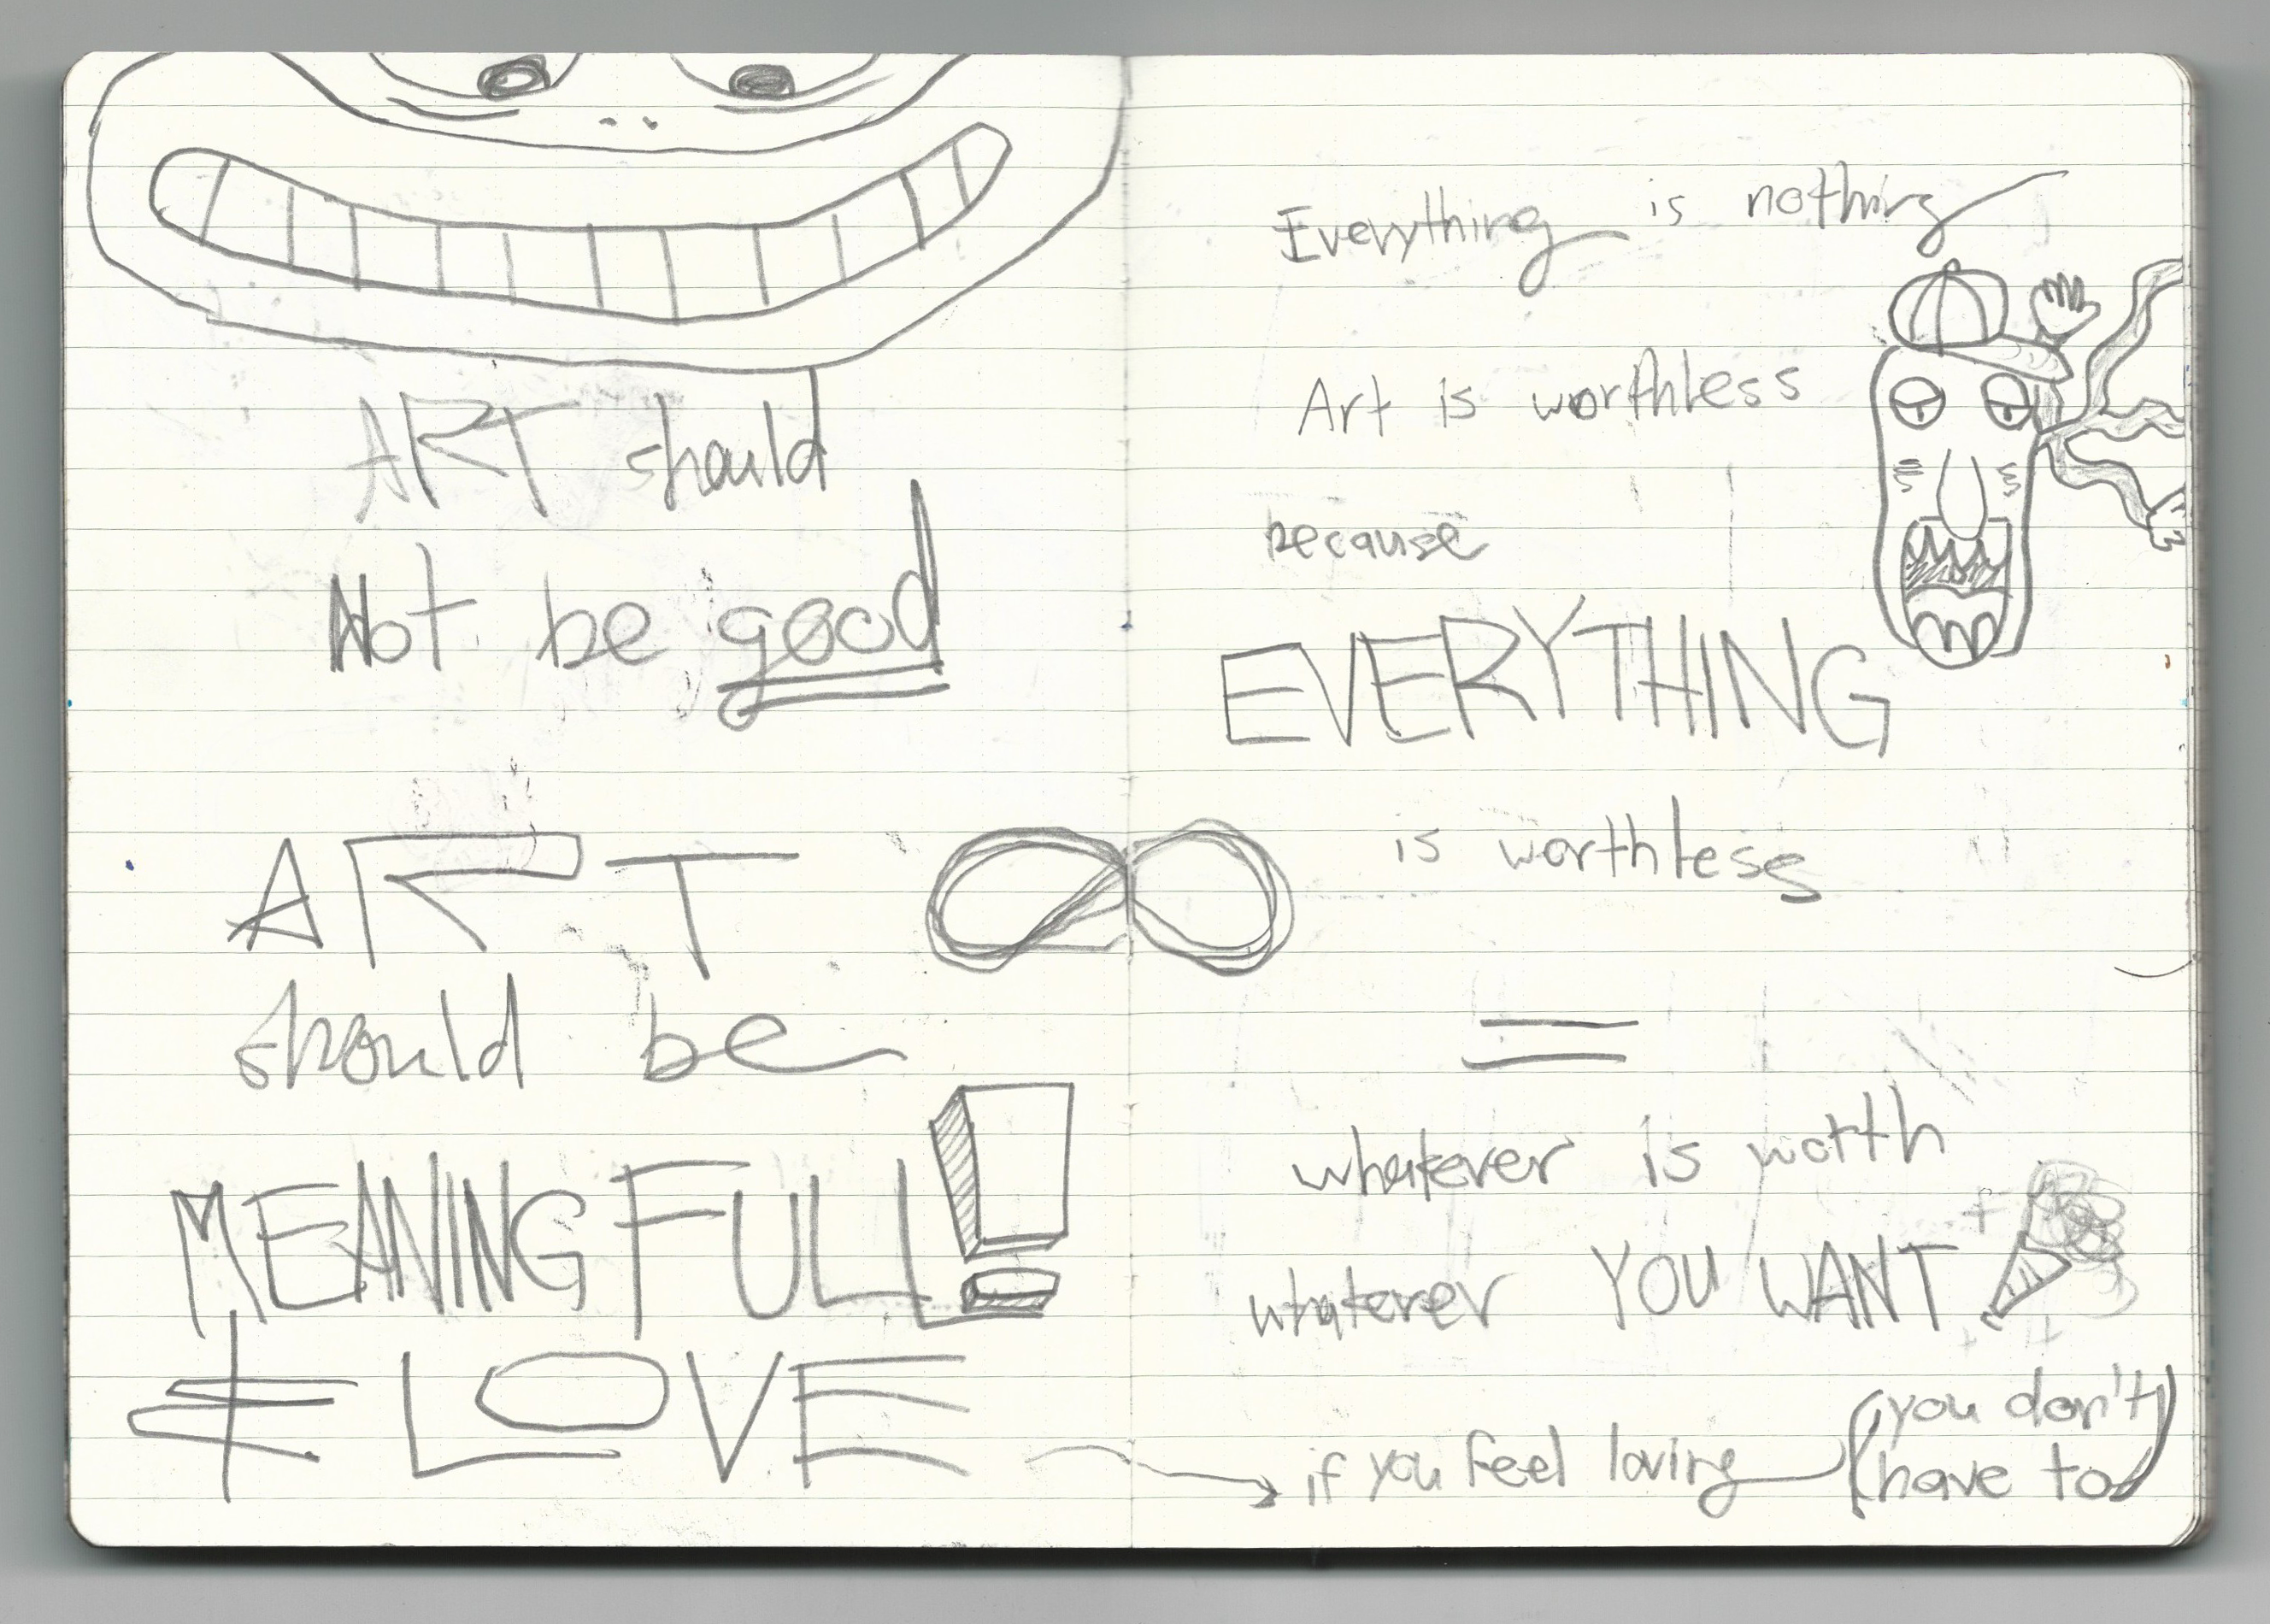 ART should
Not be good
ART
should be
MEANINGFULL!
≠ LOVE
Everything is nothing
Art is worthless
because
EVERYTHING
is worthless
=
whatever is worth
whatever YOU WANT
if you feel loving (you don't
have to)